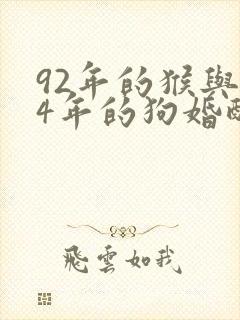 92年的猴與
4年的狗婚
飛雲如我